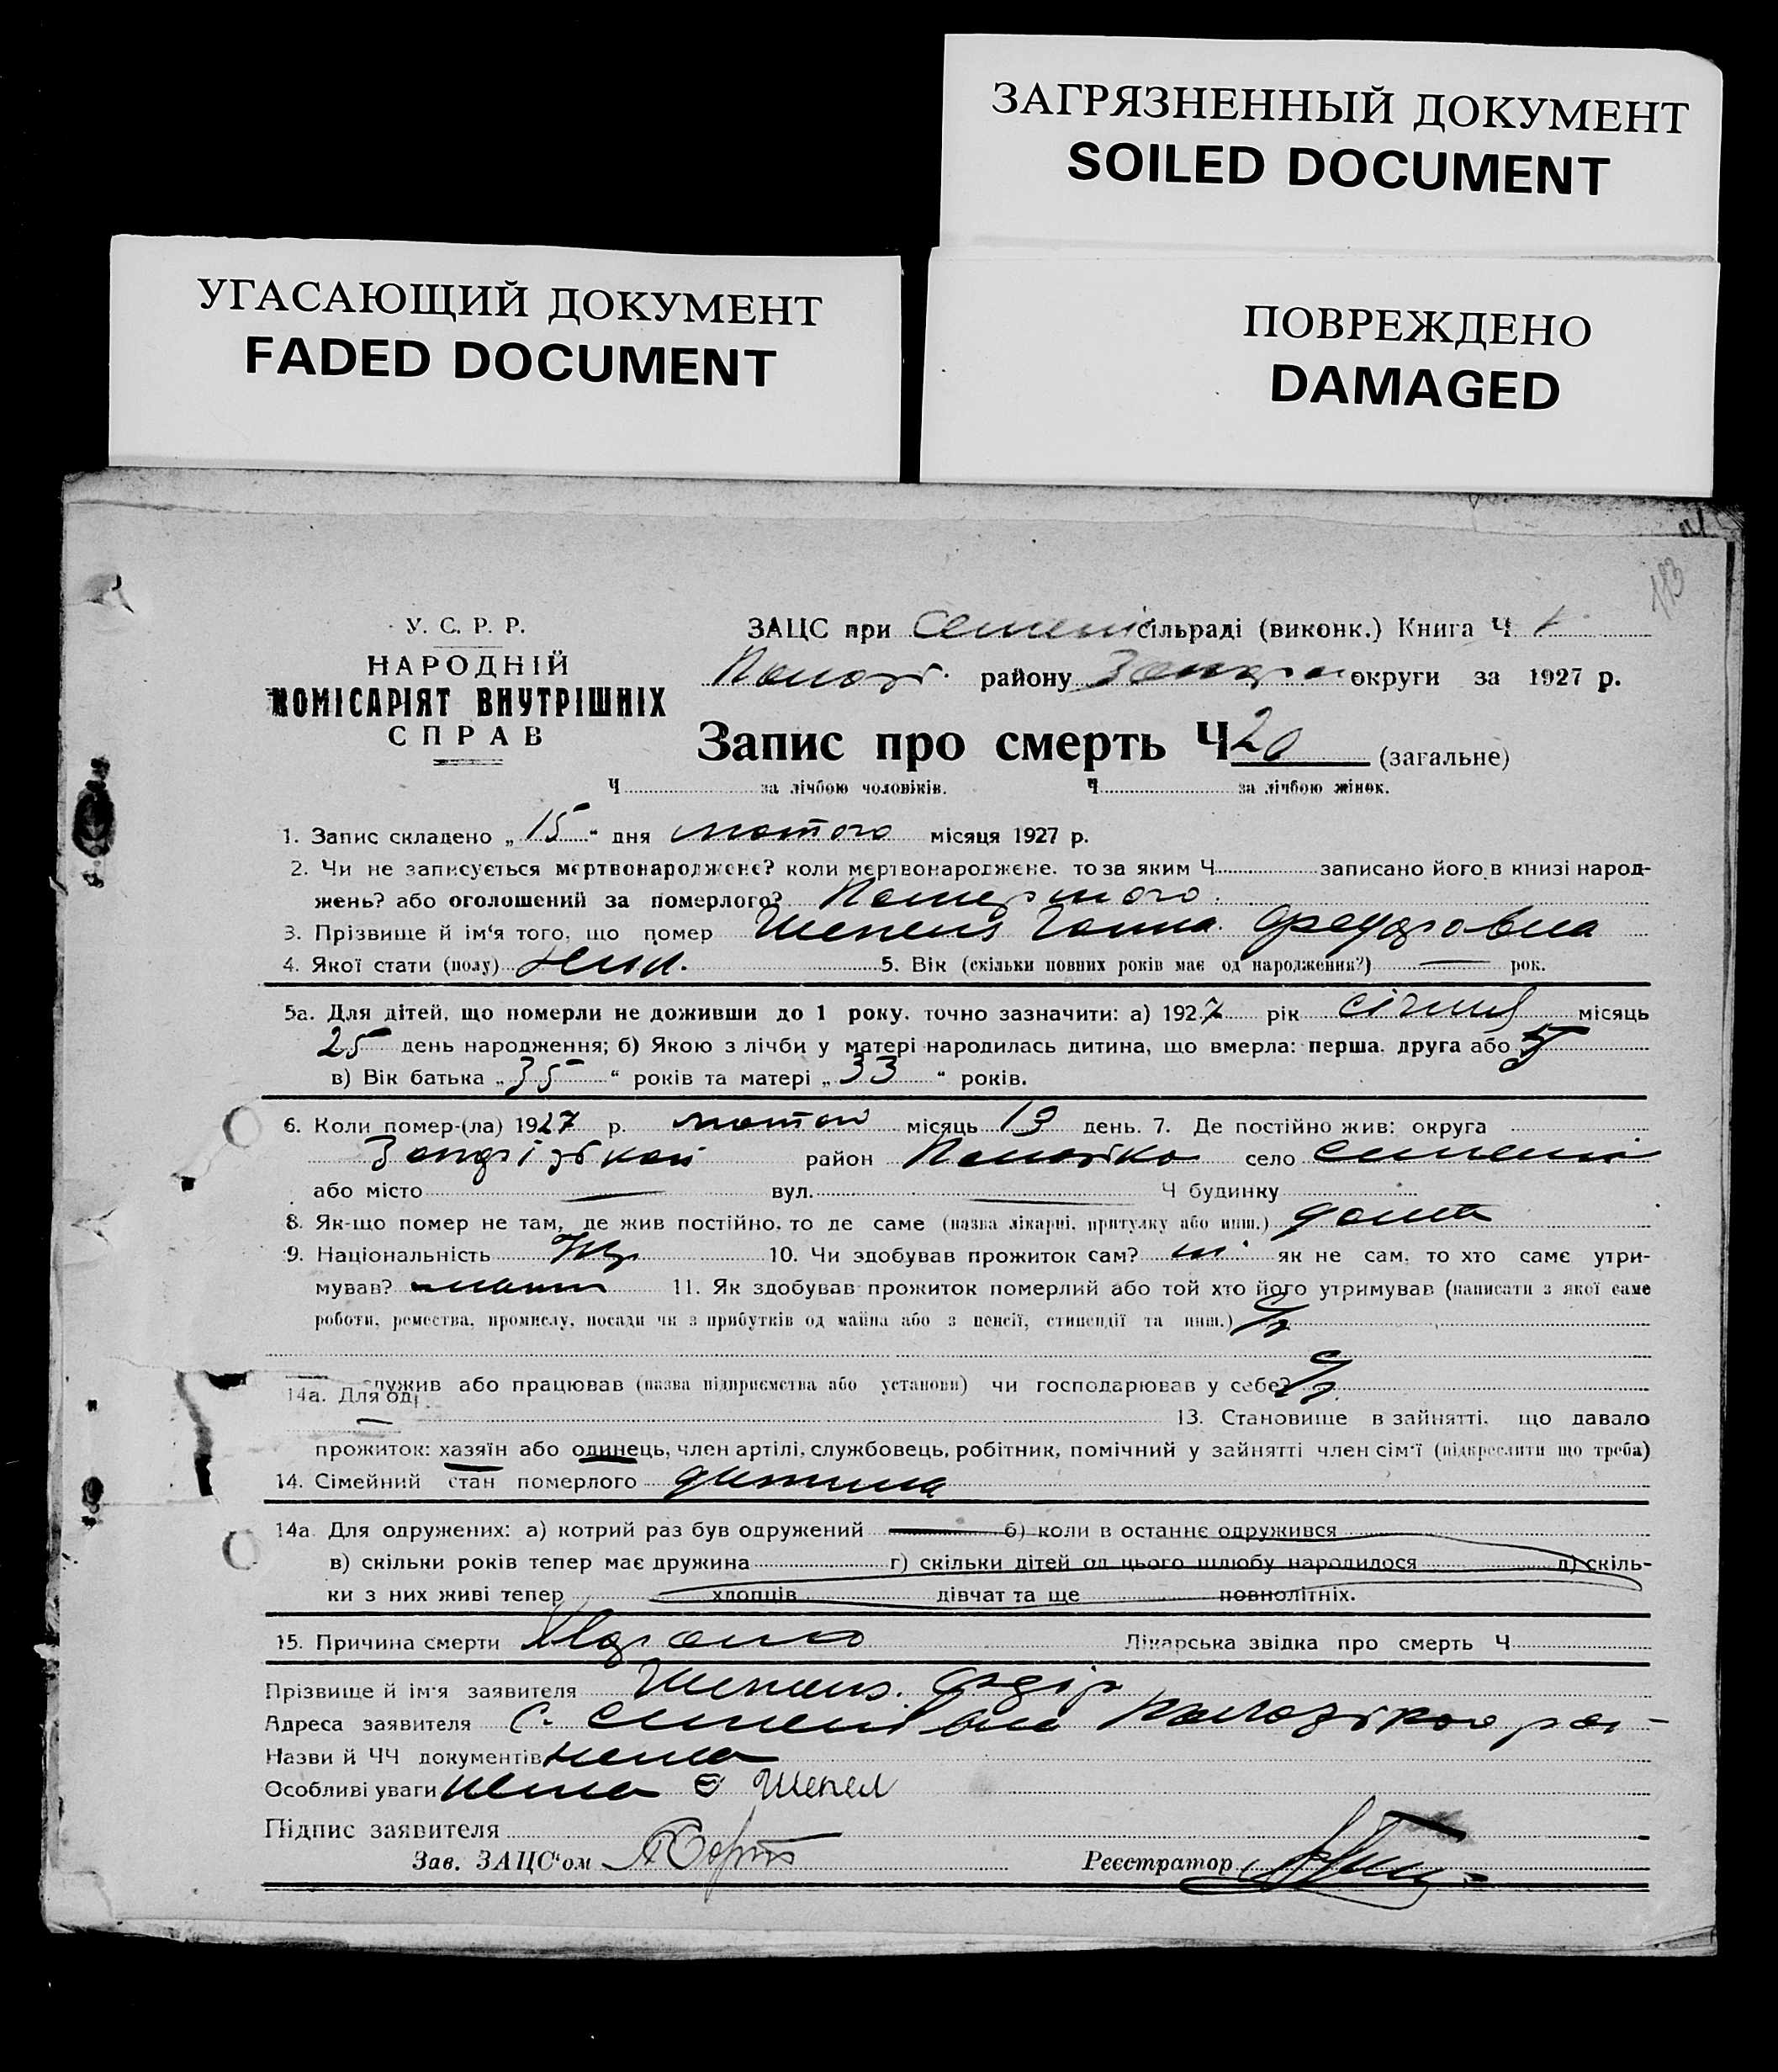 ЗАГРЯЗНЕННЫЙ ДОКУМЕНТ
SOILED DOCUMENT
УГАСАЮЩИЙ ДОКУМЕНТ
FADED DOCUMENT
ПОВРЕЖДЕНО
DAMAGED
113
У. С. Р. Р.
НАРОДНІЙ
КОМІСАРІЯТ ВНУТРІШНІХ
СПРАВ
ЗАЦС при сільраді (виконк.) Книга Ч
району округи за 1927 р.
Запис про смерть Ч 20 (загальне)
Ч за лічбою чоловіків. Ч за лічбою жінок.
1. Запис складено „ 15 “ дня лютого місяця 1927 р.
2. Чи не записується мертвонароджене? коли мертвонароджене. то за яким Ч записано його в книзі народ-
жень? або оголошений за померлого? Померлого
3. Прізвище й ім'я того, що помер Шепель Ганна Федоровна
4. Якої стати (полу) жін. 5. Вік (скільки повних років має од народження?) — рок.
5а. Для дітей, що померли не доживши до 1 року. точно зазначити: а) 1927 рік січня місяць
25 день народження; б) Якою з лічби у матері народилась дитина, що вмерла: перша. друга або 5
в) Вік батька „ 35 “ років та матері „ 33 “ років.
6. Коли помер-(ла) 1927 р. лютого місяць 13 день. 7. Де постійно жив: округа
район село
або місто — вул. — Ч будинку
8. Як-що помер не там, де жив постійно, то де саме (назва лікарні, притулку або инш.) дома
9. Національність Укр 10. Чи здобував прожиток сам? ні як не сам, то хто саме утри-
мував? 11. Як здобував прожиток померлий або той хто його утримував (написати з якої саме
роботи, ремества, промислу, посади чи з прибутків од майна або з пенсії, стипендії та инш.) С/г
служив або працював (назва підприємства або установи) чи господарював у себе? С/г
14а. Для од
13. Становище в зайнятті, що давало
прожиток: хазяїн або одинець, член артілі, службовець, робітник, помічний у зайнятті член сім'ї (підкреслити що треба)
14. Сімейний стан померлого дитина
14а Для одружених: а) котрий раз був одружений б) коли в останнє одружився
в) скільки років тепер має дружина г) скільки дітей од цього шлюбу народилося д) скіль-
ки з них живі тепер хлопців дівчат та ще повнолітніх.
15. Причина смерти Лікарська звідка про смерть Ч
Прізвище й ім'я заявителя Шепель Федір
Адреса заявителя с.
Назви й ЧЧ документів нема
Особливі уваги нема Шепел
Підпис заявителя
Зав. ЗАЦС'ом Реєстратор